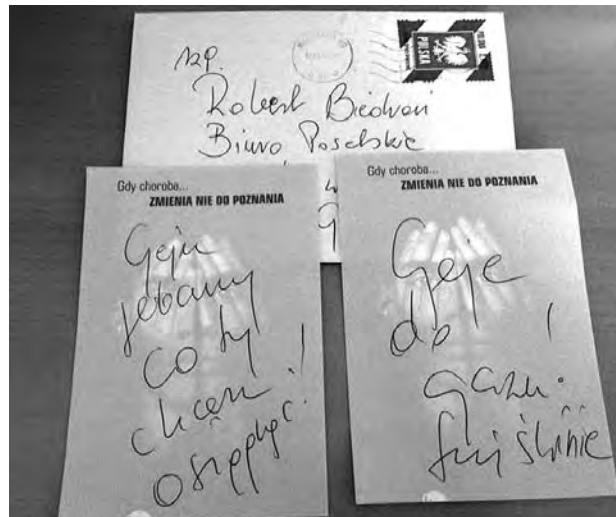 POLSKA
Robert Biedroń
Biuro Poselskie
Gdy choroba...
ZMIENIA NIE DO POZNANIA
Geju
jebany
co ty
chcesz
osiągnąć!
Gdy choroba...
ZMIENIA NIE DO POZNANIA
Geje
do !
gazu